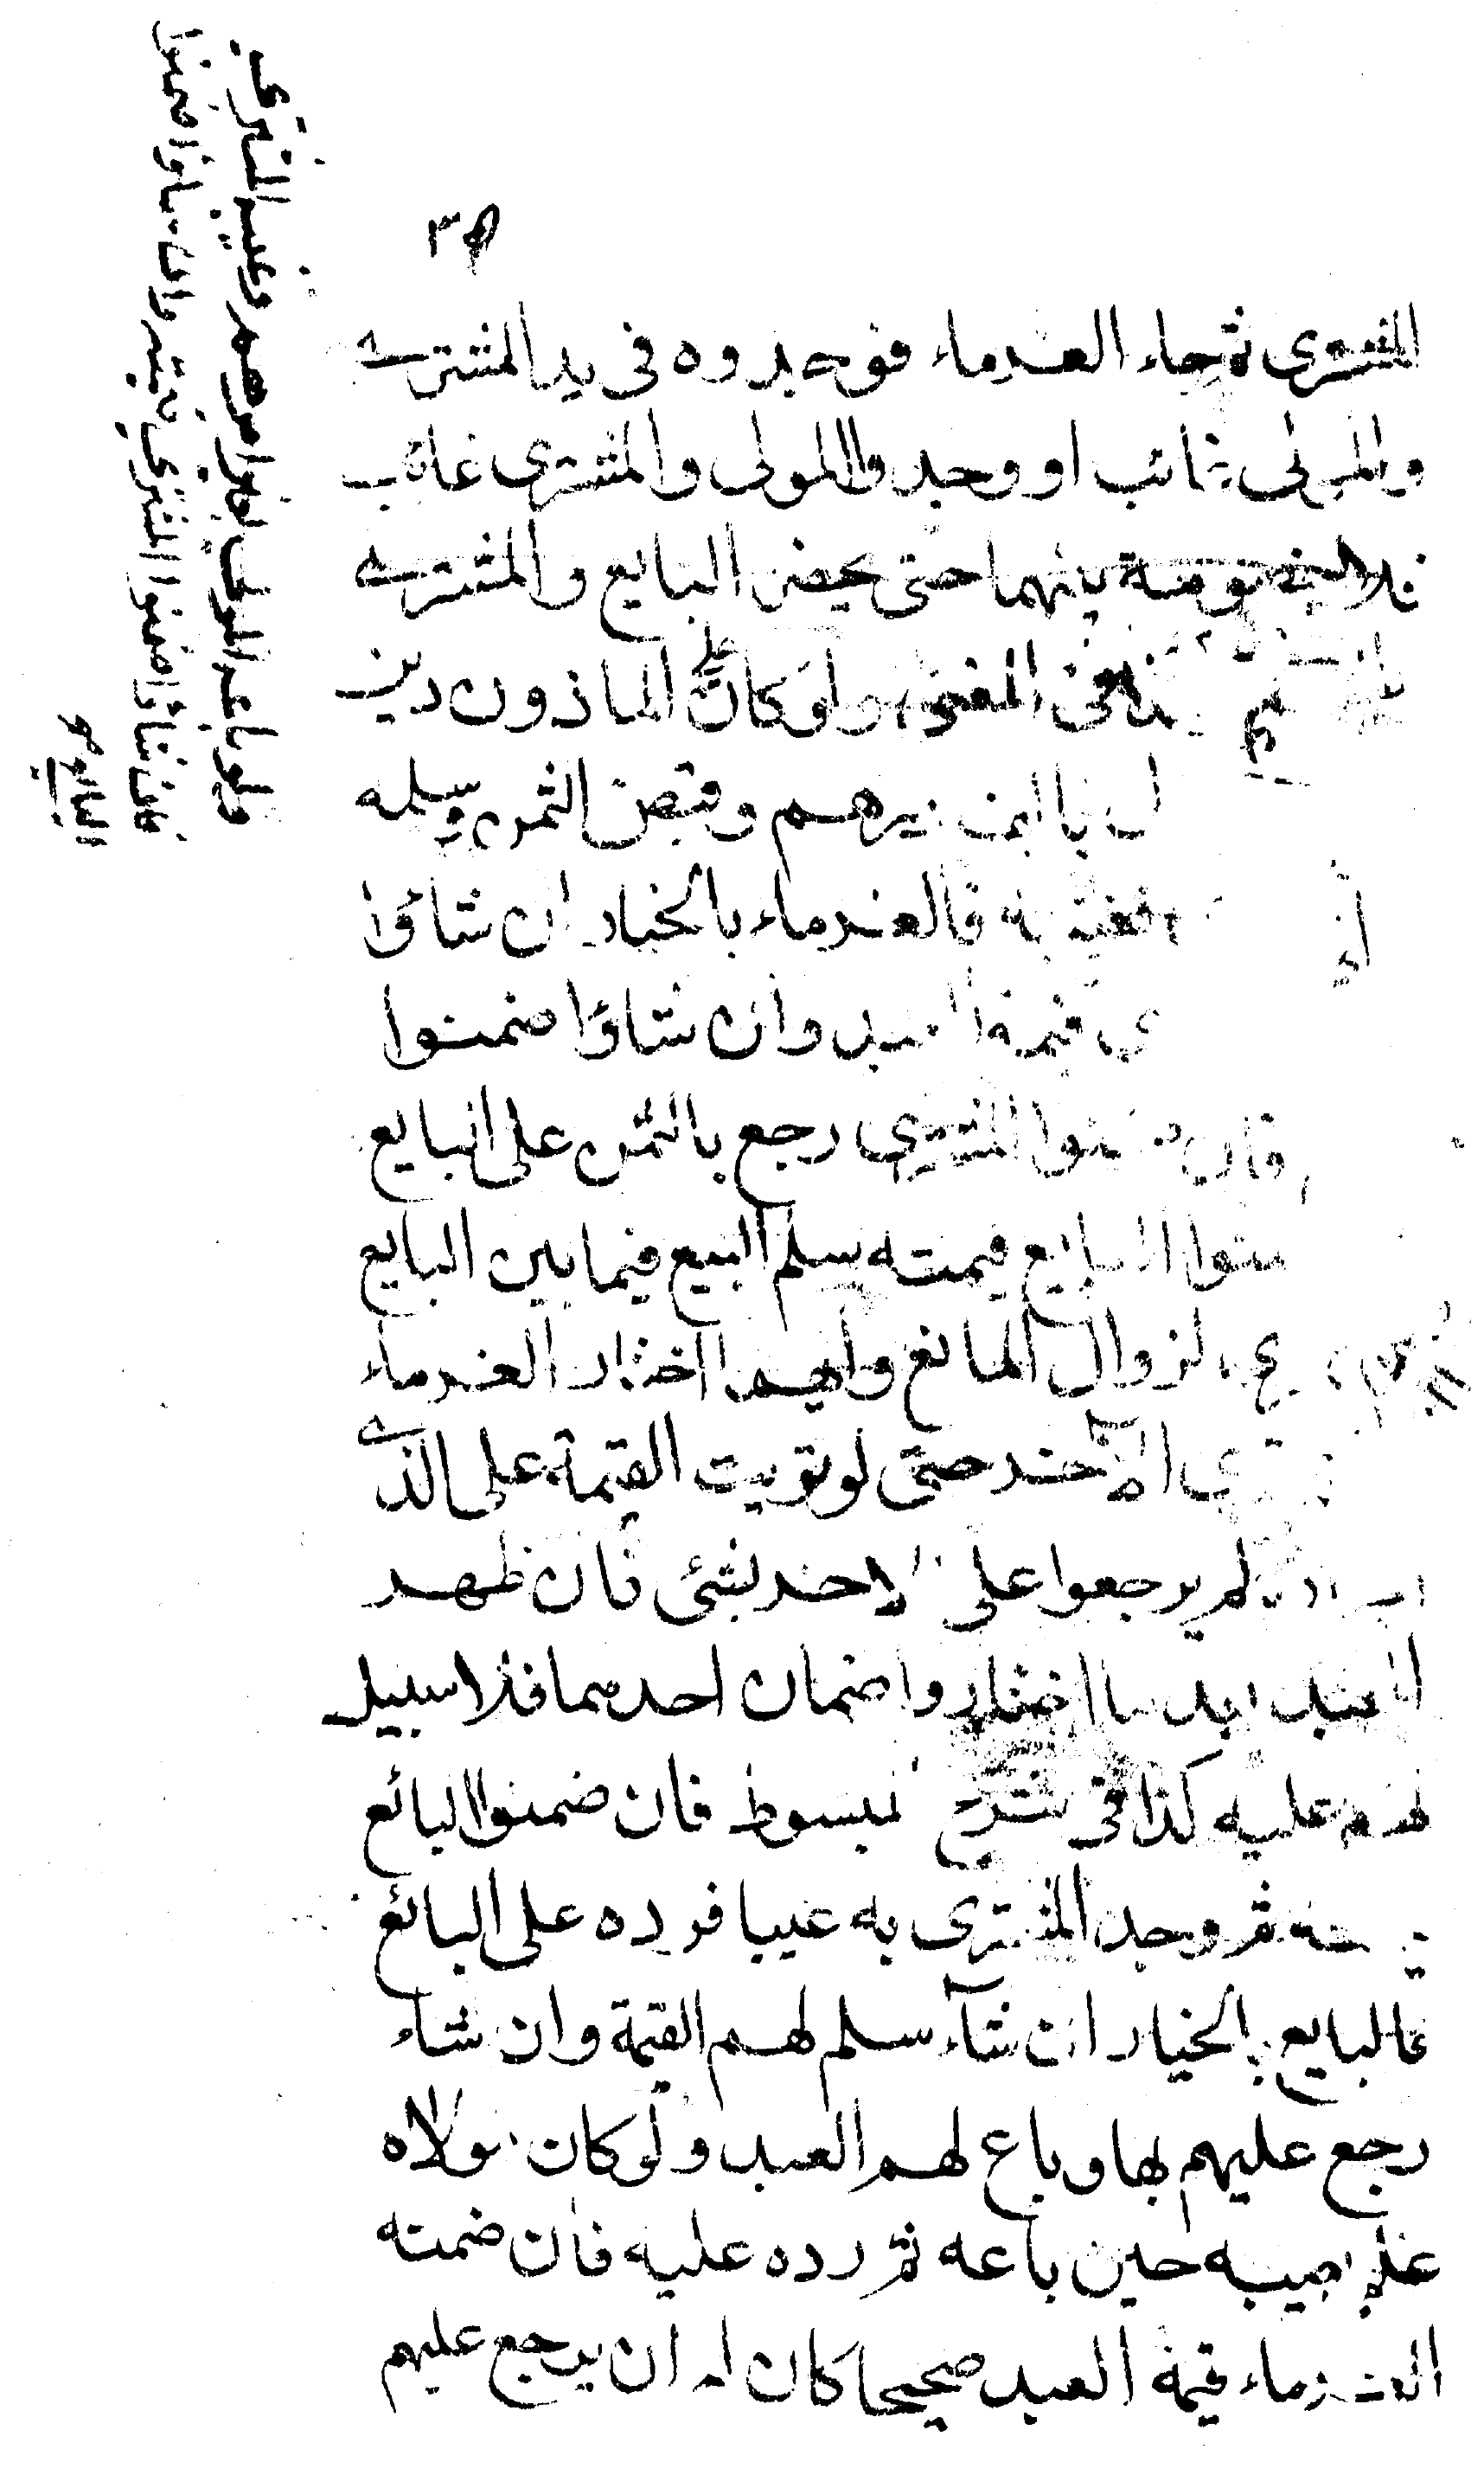 المشترى ثم جاء الغرماء فوجدوه فى يد المشترى
والمولى غائب او وجدوا المولى والمشترى غائب
فلا خصومة بينهما حتى يحضر البايع والمشترى
فى المغنى ولو كان على الماذون دين
وقبض الثمن وسلمه
فالغرماء بالخيار ان شاؤا
قيمة العبد وان شاؤا ضمنوا
فان ضمنوا المشترى رجع بالثمن على البايع
ضمنوا البايع قيمته يسلم البيع فيما بين البايع
لزوال المانع وايهما اختار الغرماء
الآخر حتى لو تويت القيمة على الذى
لم يرجعوا على الاخر بشئ فان ظهر
العبد بعد ما اختاروا ضمان احدهما فلا سبيل
لهم عليه كذا فى شرح المبسوط فان ضمنوا البائع
ثم وجد المشترى به عيبا فرده على البائع
فالبايع بالخيار ان شآء سلم لهم القيمة وان شاء
رجع عليهم بها وباع لهم العبد ولو كان مولاه
حين باعه ثم رده عليه فان ضمنه
الغرماء قيمة العبد صحيحا كان له ان يرجع عليهم
ولو باعه المولى بغير امرهم وغيبه المشترى
فان شاؤا ضمنوا المشترى قيمته وان شاؤا ضمنوا
البايع